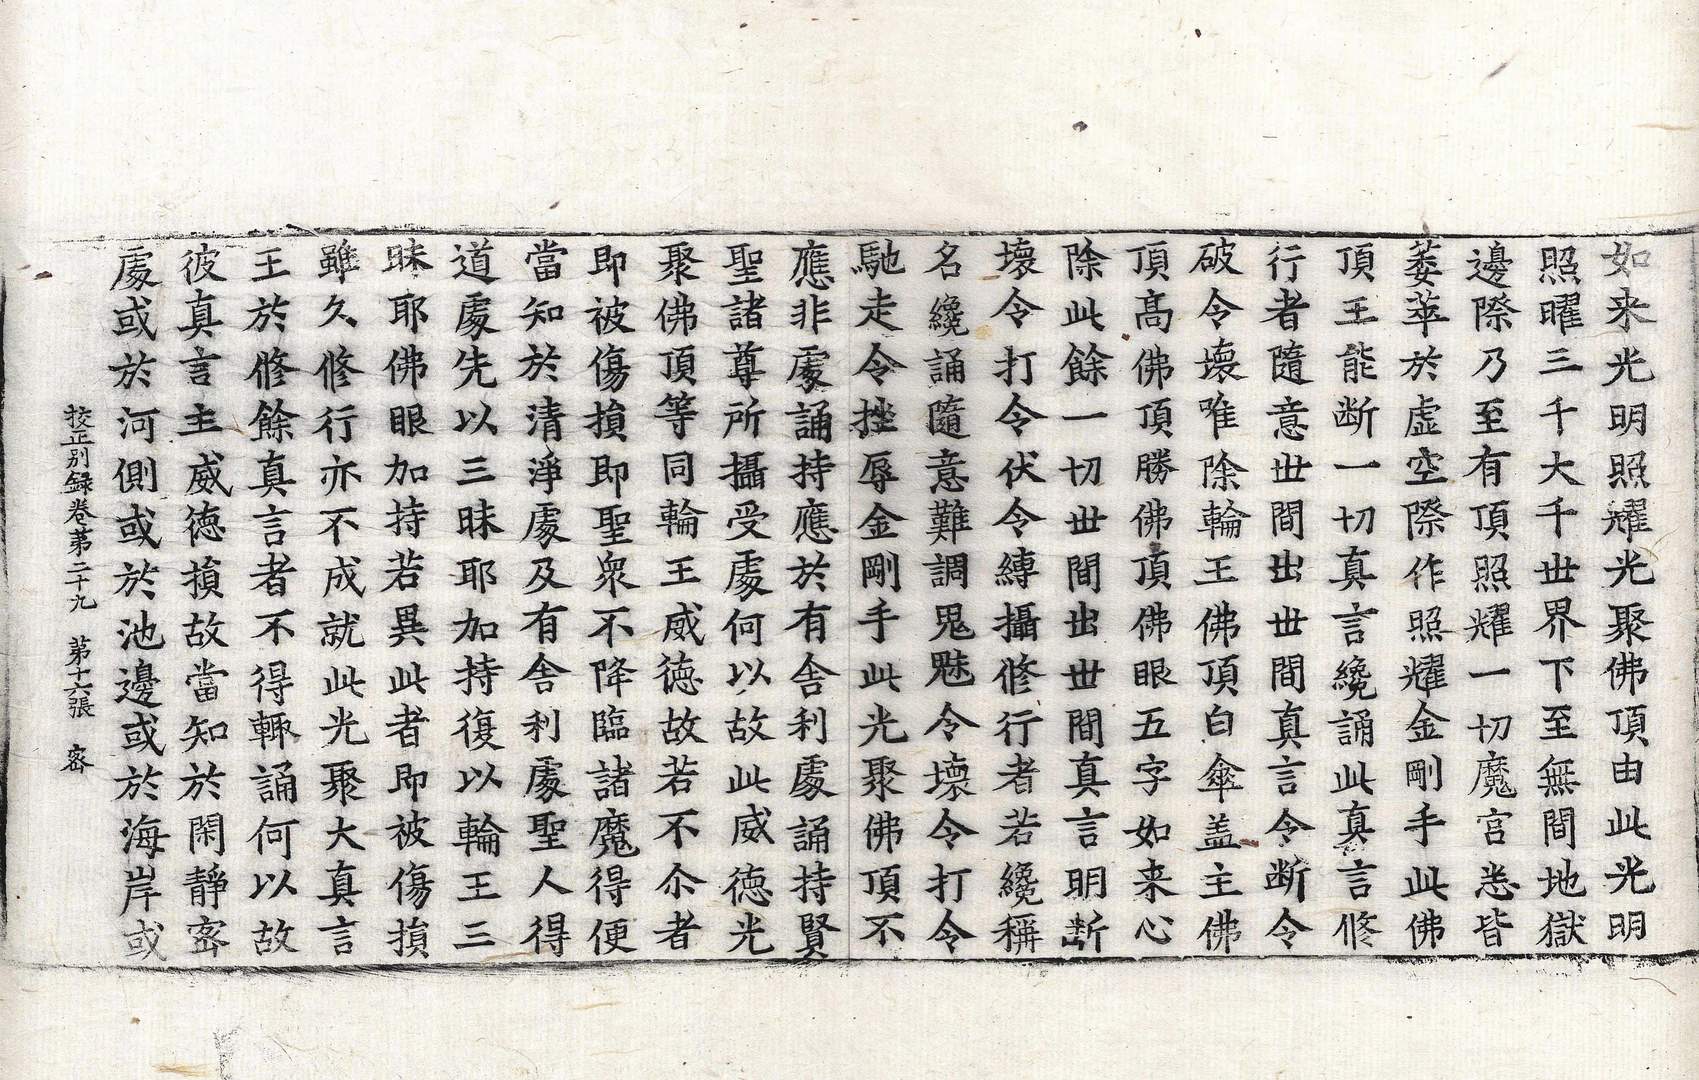 如来光明照耀光聚佛頂由此光明
照曜三千大千世界下至無間地獄
邊際乃至有頂照耀一切魔宫悉皆
萎萃於虚空際作照耀金剛手此佛
頂王能斷一切真言纔誦此真言修
行者隨意世間出世間真言令断令
破令壞唯除輪王佛頂白傘盖主佛
頂髙佛頂勝佛頂佛眼五字如来心
除此餘一切世間出世間真言明断
壞令打令伏令縛攝修行者若纔稱
名纔誦隨意難調鬼魅令壞令打令
馳走令挫辱金剛手此光聚佛頂不
應非處誦持應於有舍利處誦持賢
聖諸尊所攝受處何以故此威德光
聚佛頂等同輪王威德故若不尒者
即被傷損即聖衆不降臨諸魔得便
當知於清淨處及有舍利處聖人得
道處先以三昧耶加持復以輪王三
昧耶佛眼加持若異此者即被傷損
雖久修行亦不成就此光聚大真言
王於修餘真言者不得輙誦何以故
彼真言主威德損故當知於閑靜宻
處或於河側或於池邊或於海岸或
挍正别録卷苐二十九　苐十六張　宻